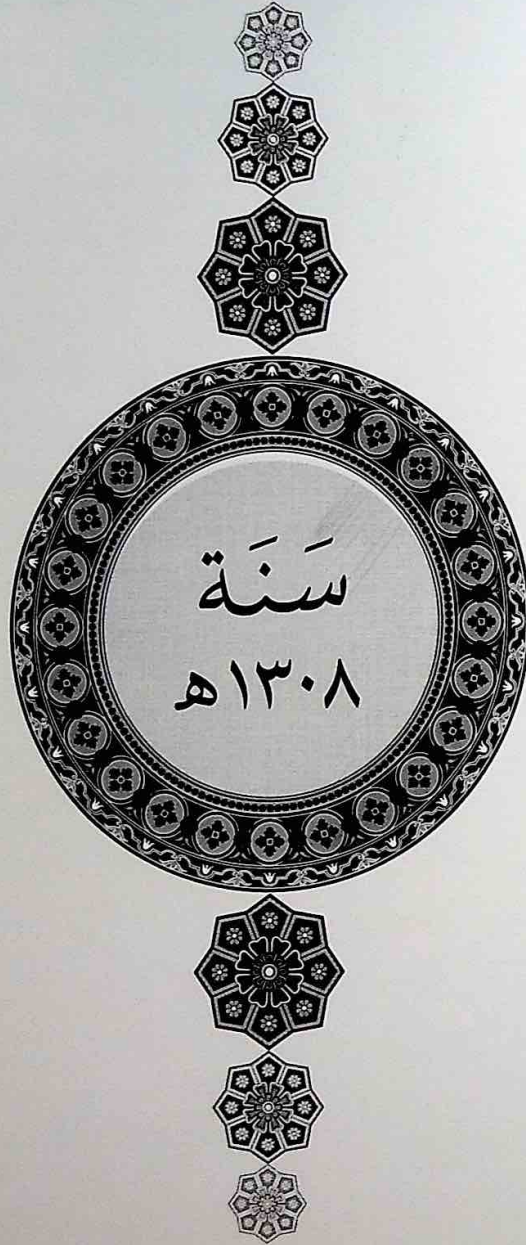 سَنَة
١٣٠٨ه